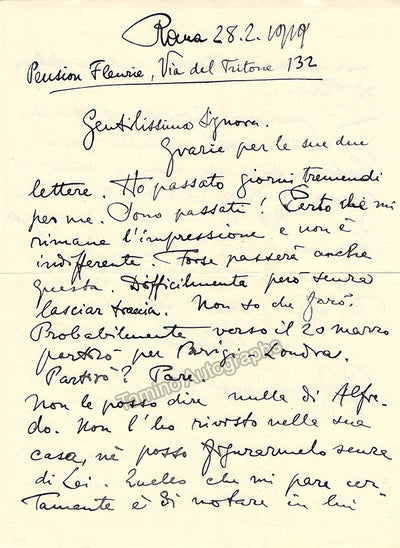 Roma 28.2.1919
Pension Fleurie, Via del Tritone 132
Gentilissima Signora.
Grazie per le sue due
lettere. Ho passato giorni tremendi
per me. Sono passati! Certo che mi
rimane l'impressione e non è
indifferente. Forse passerà anche
questa. Difficilmente però senza
lasciar traccia. Non so che farò.
Probabilmente verso il 20 marzo
partirò per Parigi - Londra.
Partirò? Pare.
Non le posso dire nulla di Alfre-
do. Non l'ho rivisto nella sua
casa, nè posso figurarmelo senza
di Lei. Quello che mi pare cer-
tamente è di notare in lui
Tamino Autographs